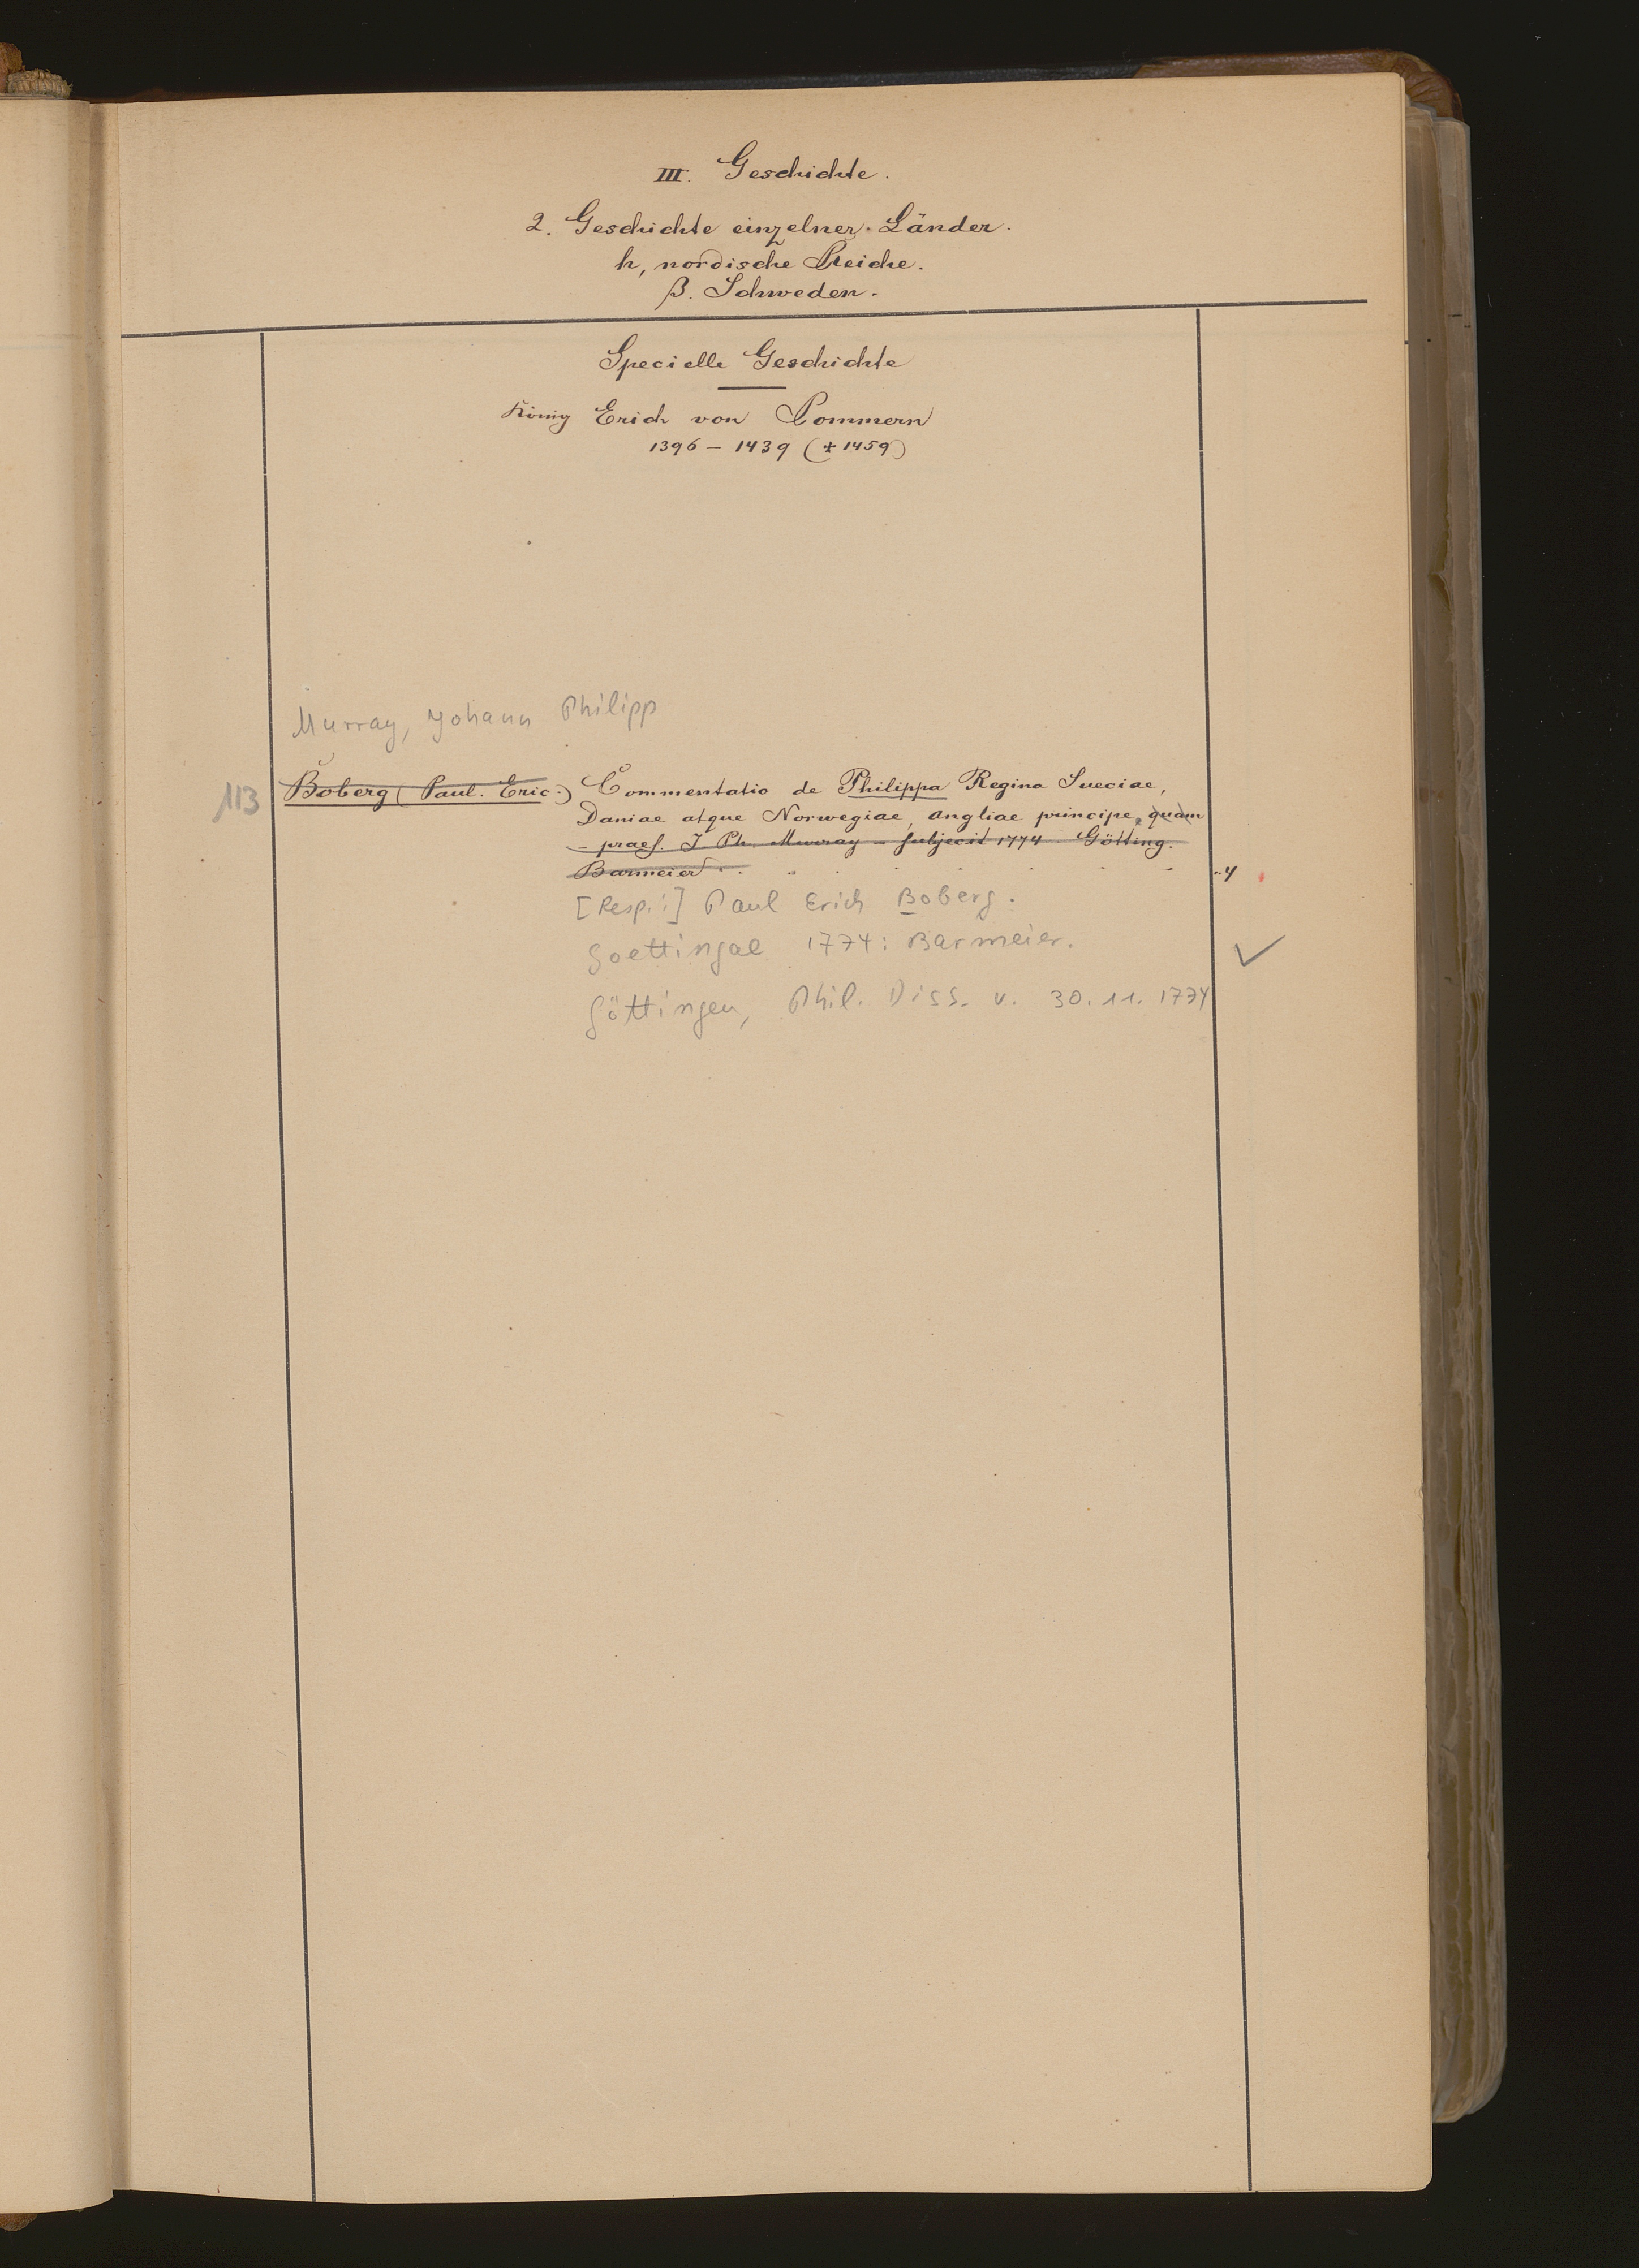 III. Geschichte.
2. Geschichte einzelner Länder.
h, nordische Reiche.
β. Schweden.
Specielle Geschichte
König Erich von Pommern
1396 – 1439 († 1459)
Murray, Johann Philipp
113 Boberg (Paul. Eric.) Commentatio de Philippa Regina Sueciae,
Daniae atque Norwegiae, Angliae principe, quam
– praes. J Ph. Murray – subjecit 1774 Götting.
Barmeier . . . . . . . 4
[Resp.:] Paul Erich Boberg.
Goettingae 1774: Barmeier. ✓
Göttingen, Phil. Diss. v. 30.11.1774